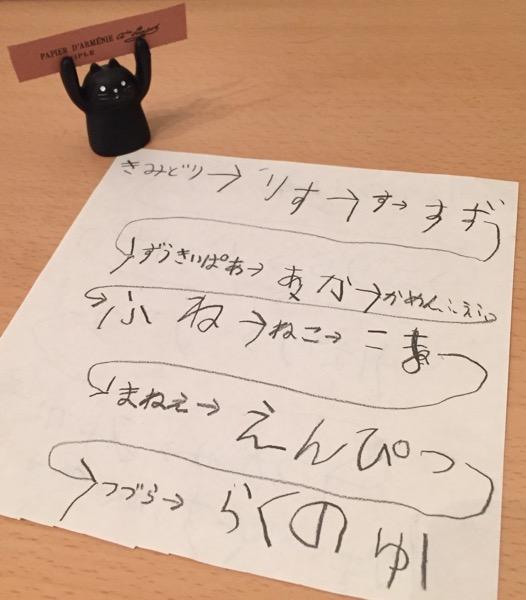 PAPIER D'ARMÉNIE
きみどり→りす→す→すず
→ずうきいぱあ→あか→かめん
→ふね→ねこ→こま
→まねえ→えんぴつ
→つづら→らくのゆ